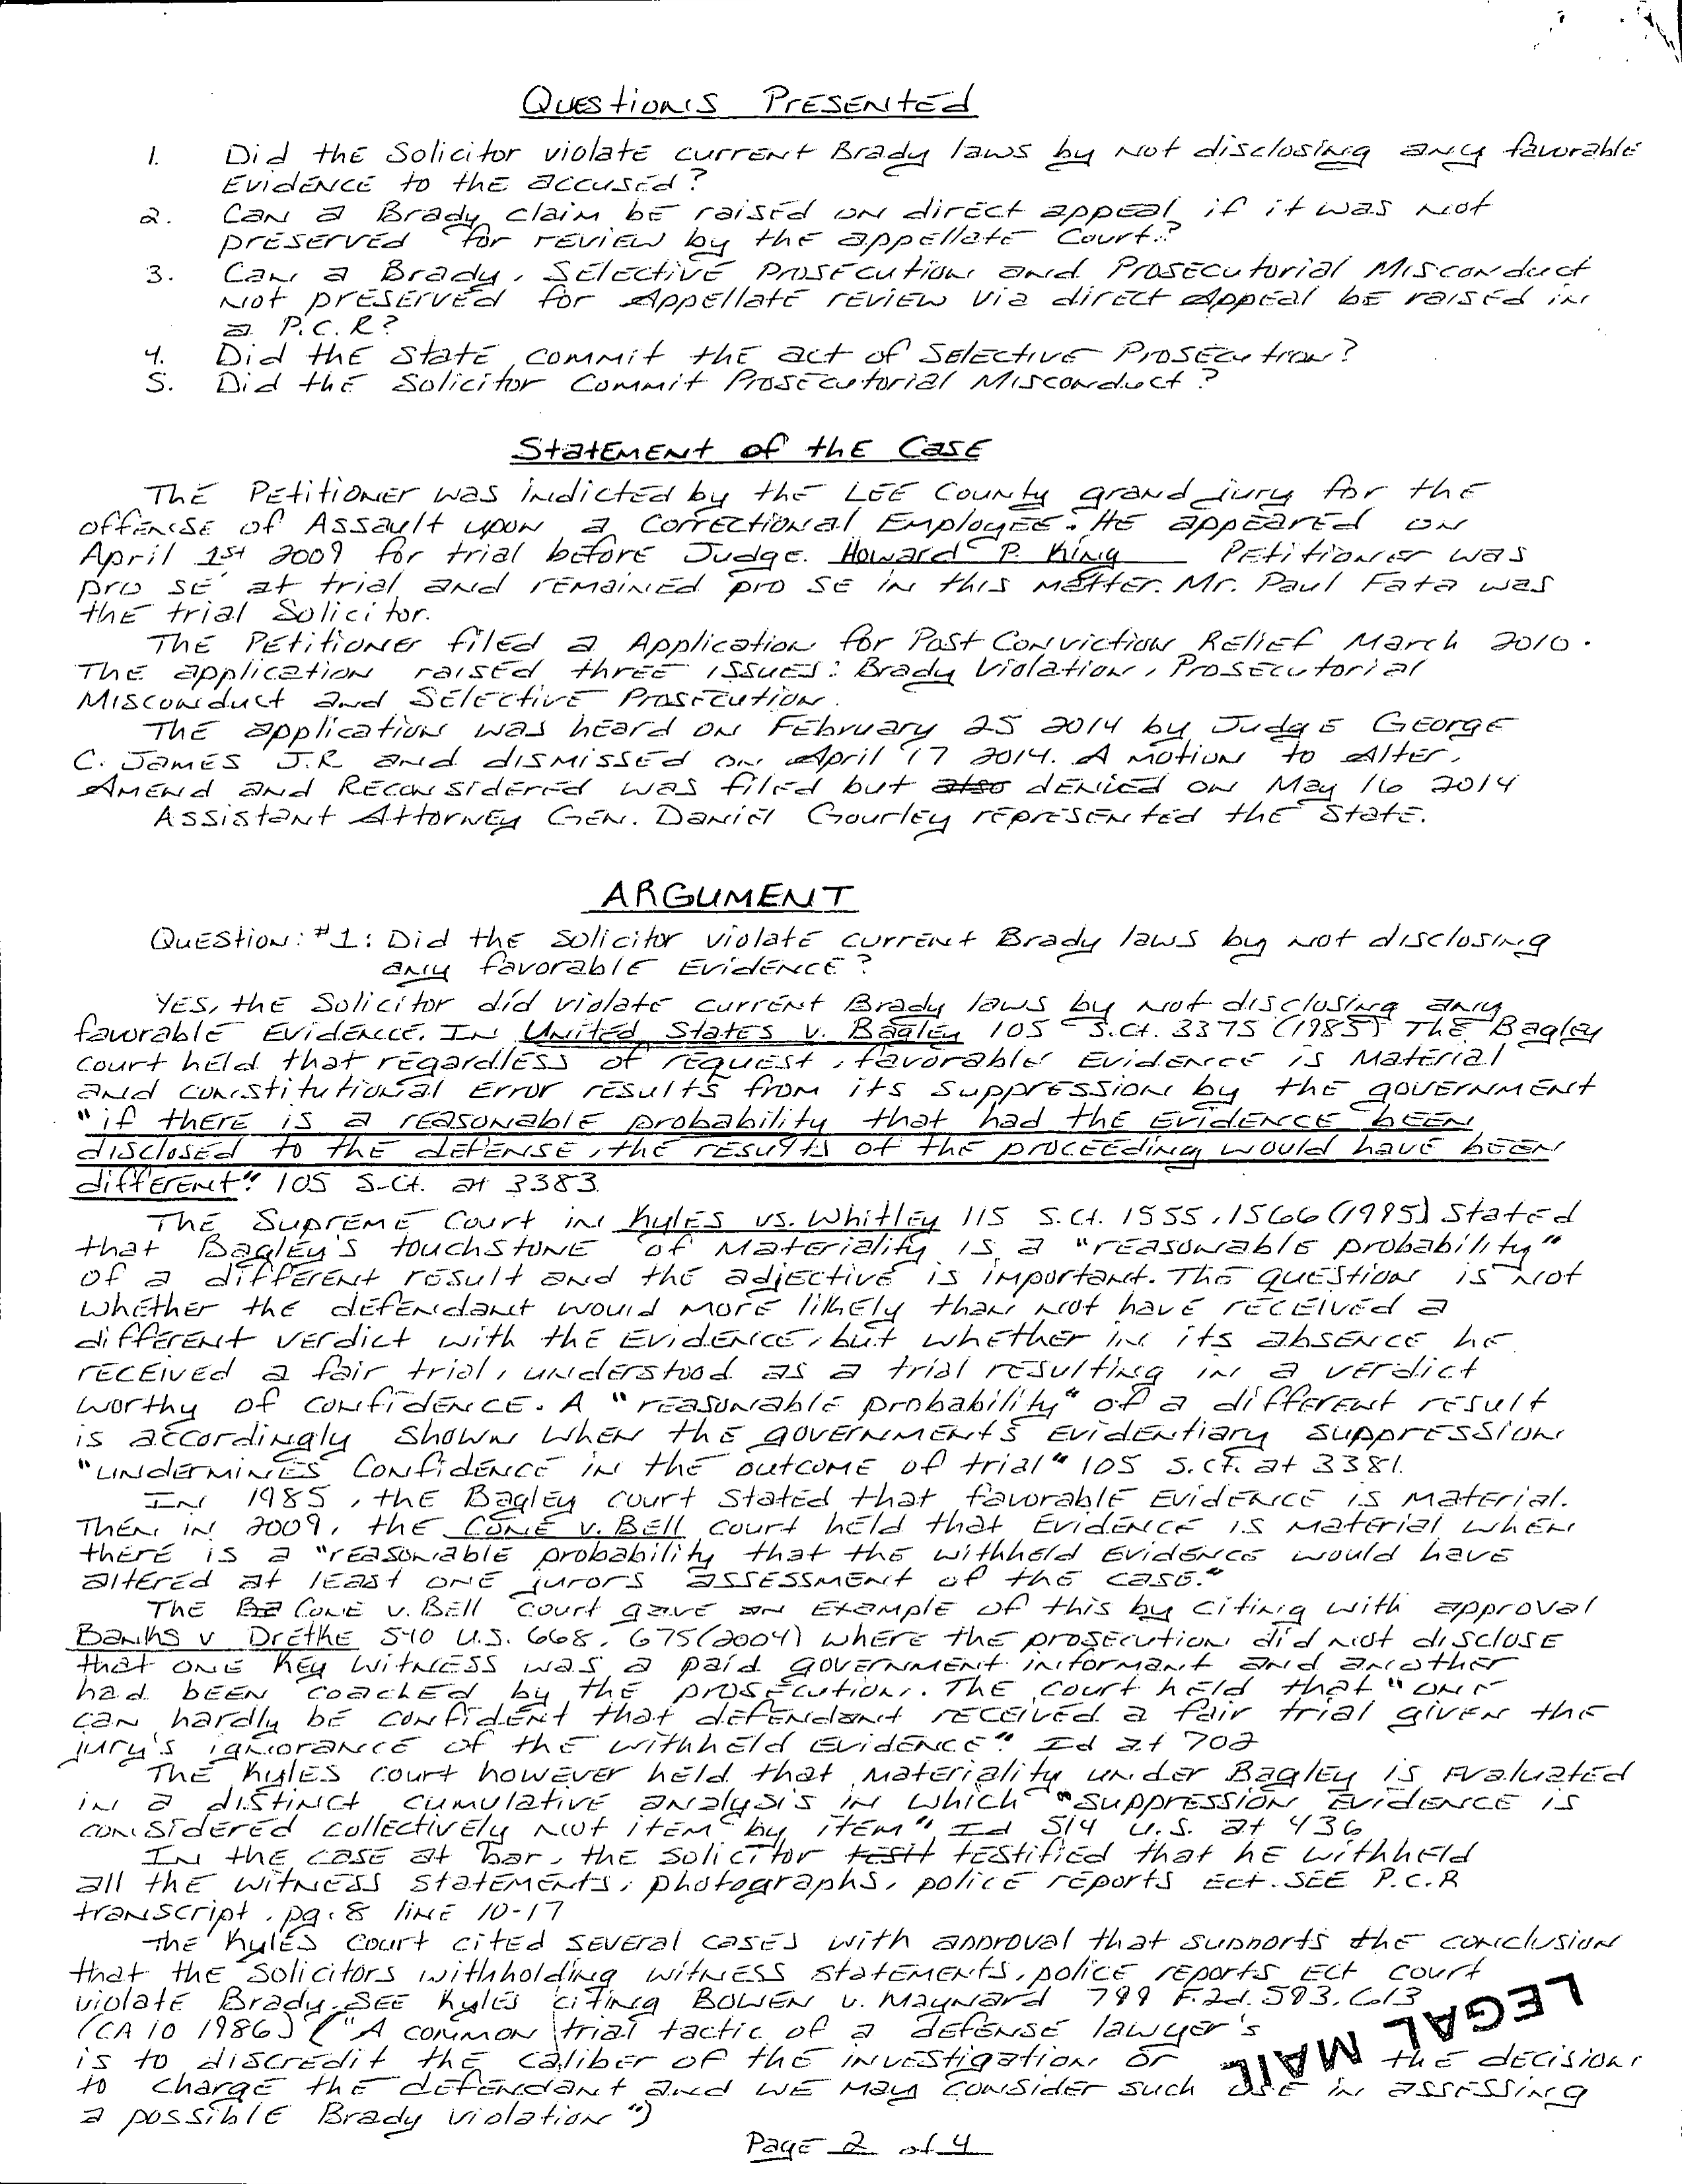 Questions Presented
1. Did the Solicitor violate current Brady laws by not disclosing any favorable
Evidence to the accused?
2. Can a Brady claim be raised on direct appeal if it was not
preserved for review by the appellate Court?
3. Can a Brady, Selective Prosecution and Prosecutorial Misconduct
not preserved for Appellate review via direct Appeal be raised in
a P.C.R?
4. Did the State commit the act of Selective Prosecution?
5. Did the Solicitor Commit Prosecutorial Misconduct?
Statement of the Case
The Petitioner was indicted by the Lee County grand jury for the
offense of Assault upon a Correctional Employee. He appeared on
April 1st 2009 for trial before Judge. Howard P. King Petitioner was
pro se at trial and remained pro se in this matter. Mr. Paul Fata was
the trial Solicitor.
The Petitioner filed a Application for Post Conviction Relief March 2010.
The application raised three issues: Brady Violation, Prosecutorial
Misconduct and Selective Prosecution.
The application was heard on February 25 2014 by Judge George
C. James J.R and dismissed on April 17 2014. A motion to Alter,
Amend and Reconsidered was filed but also denied on May 16 2014
Assistant Attorney Gen. Daniel Gourley represented the State.
ARGUMENT
Question: #1: Did the solicitor violate current Brady laws by not disclosing
any favorable Evidence?
Yes, the Solicitor did violate current Brady laws by not disclosing any
favorable Evidence. In United States v. Bagley 105 S.Ct. 3375 (1985) The Bagley
court held that regardless of request, favorable Evidence is Material
and constitutional Error results from its suppression by the government
"if there is a reasonable probability that had the Evidence been
disclosed to the defense, the results of the proceeding would have been
different". 105 S.Ct. at 3383.
The Supreme Court in Kyles vs. Whitley 115 S.Ct. 1555, 1566 (1995) stated
that Bagley's touchstone of Materiality is a "reasonable probability"
of a different result and the adjective is important. The question is not
whether the defendant would more likely than not have received a
different verdict with the Evidence, but whether in its absence he
received a fair trial, understood as a trial resulting in a verdict
worthy of confidence. A "reasonable probability" of a different result
is accordingly shown when the government's Evidentiary suppression
"undermines confidence in the outcome of trial" 105 S.Ct. at 3381.
In 1985, the Bagley court stated that favorable Evidence is material.
Then in 2009, the Cone v. Bell court held that Evidence is material when
there is a "reasonable probability that the withheld Evidence would have
altered at least one jurors assessment of the case."
The Ba Cone v. Bell court gave an Example of this by citing with approval
Banks v Dretke 540 U.S. 668, 675 (2004) where the prosecution did not disclose
that one key witness was a paid government informant and another
had been coached by the prosecution. The court held that "one
can hardly be confident that defendant received a fair trial given the
jury's ignorance of the withheld Evidence". Id at 702
The Kyles court however held that materiality under Bagley is Evaluated
in a distinct cumulative analysis in which "suppression Evidence is
considered collectively not item by item" Id 514 U.S. at 436
In the case at bar, the solicitor testt testified that he withheld
all the witness statements, photographs, police reports Ect. SEE P.C.R
transcript. pg. 8 line 10-17
The Kyles court cited several cases with approval that supports the conclusion
that the solicitors withholding witness statements, police reports Ect court
violate Brady. SEE Kyles citing Bowen v. Maynard 799 F.2d. 593, 613
(CA 10 1986) ("A common trial tactic of a defense lawyer's
is to discredit the caliber of the investigation or the decision
to charge the defendant and we may consider such use in assessing
a possible Brady violation")
LEGAL MAIL
Page 2 of 4